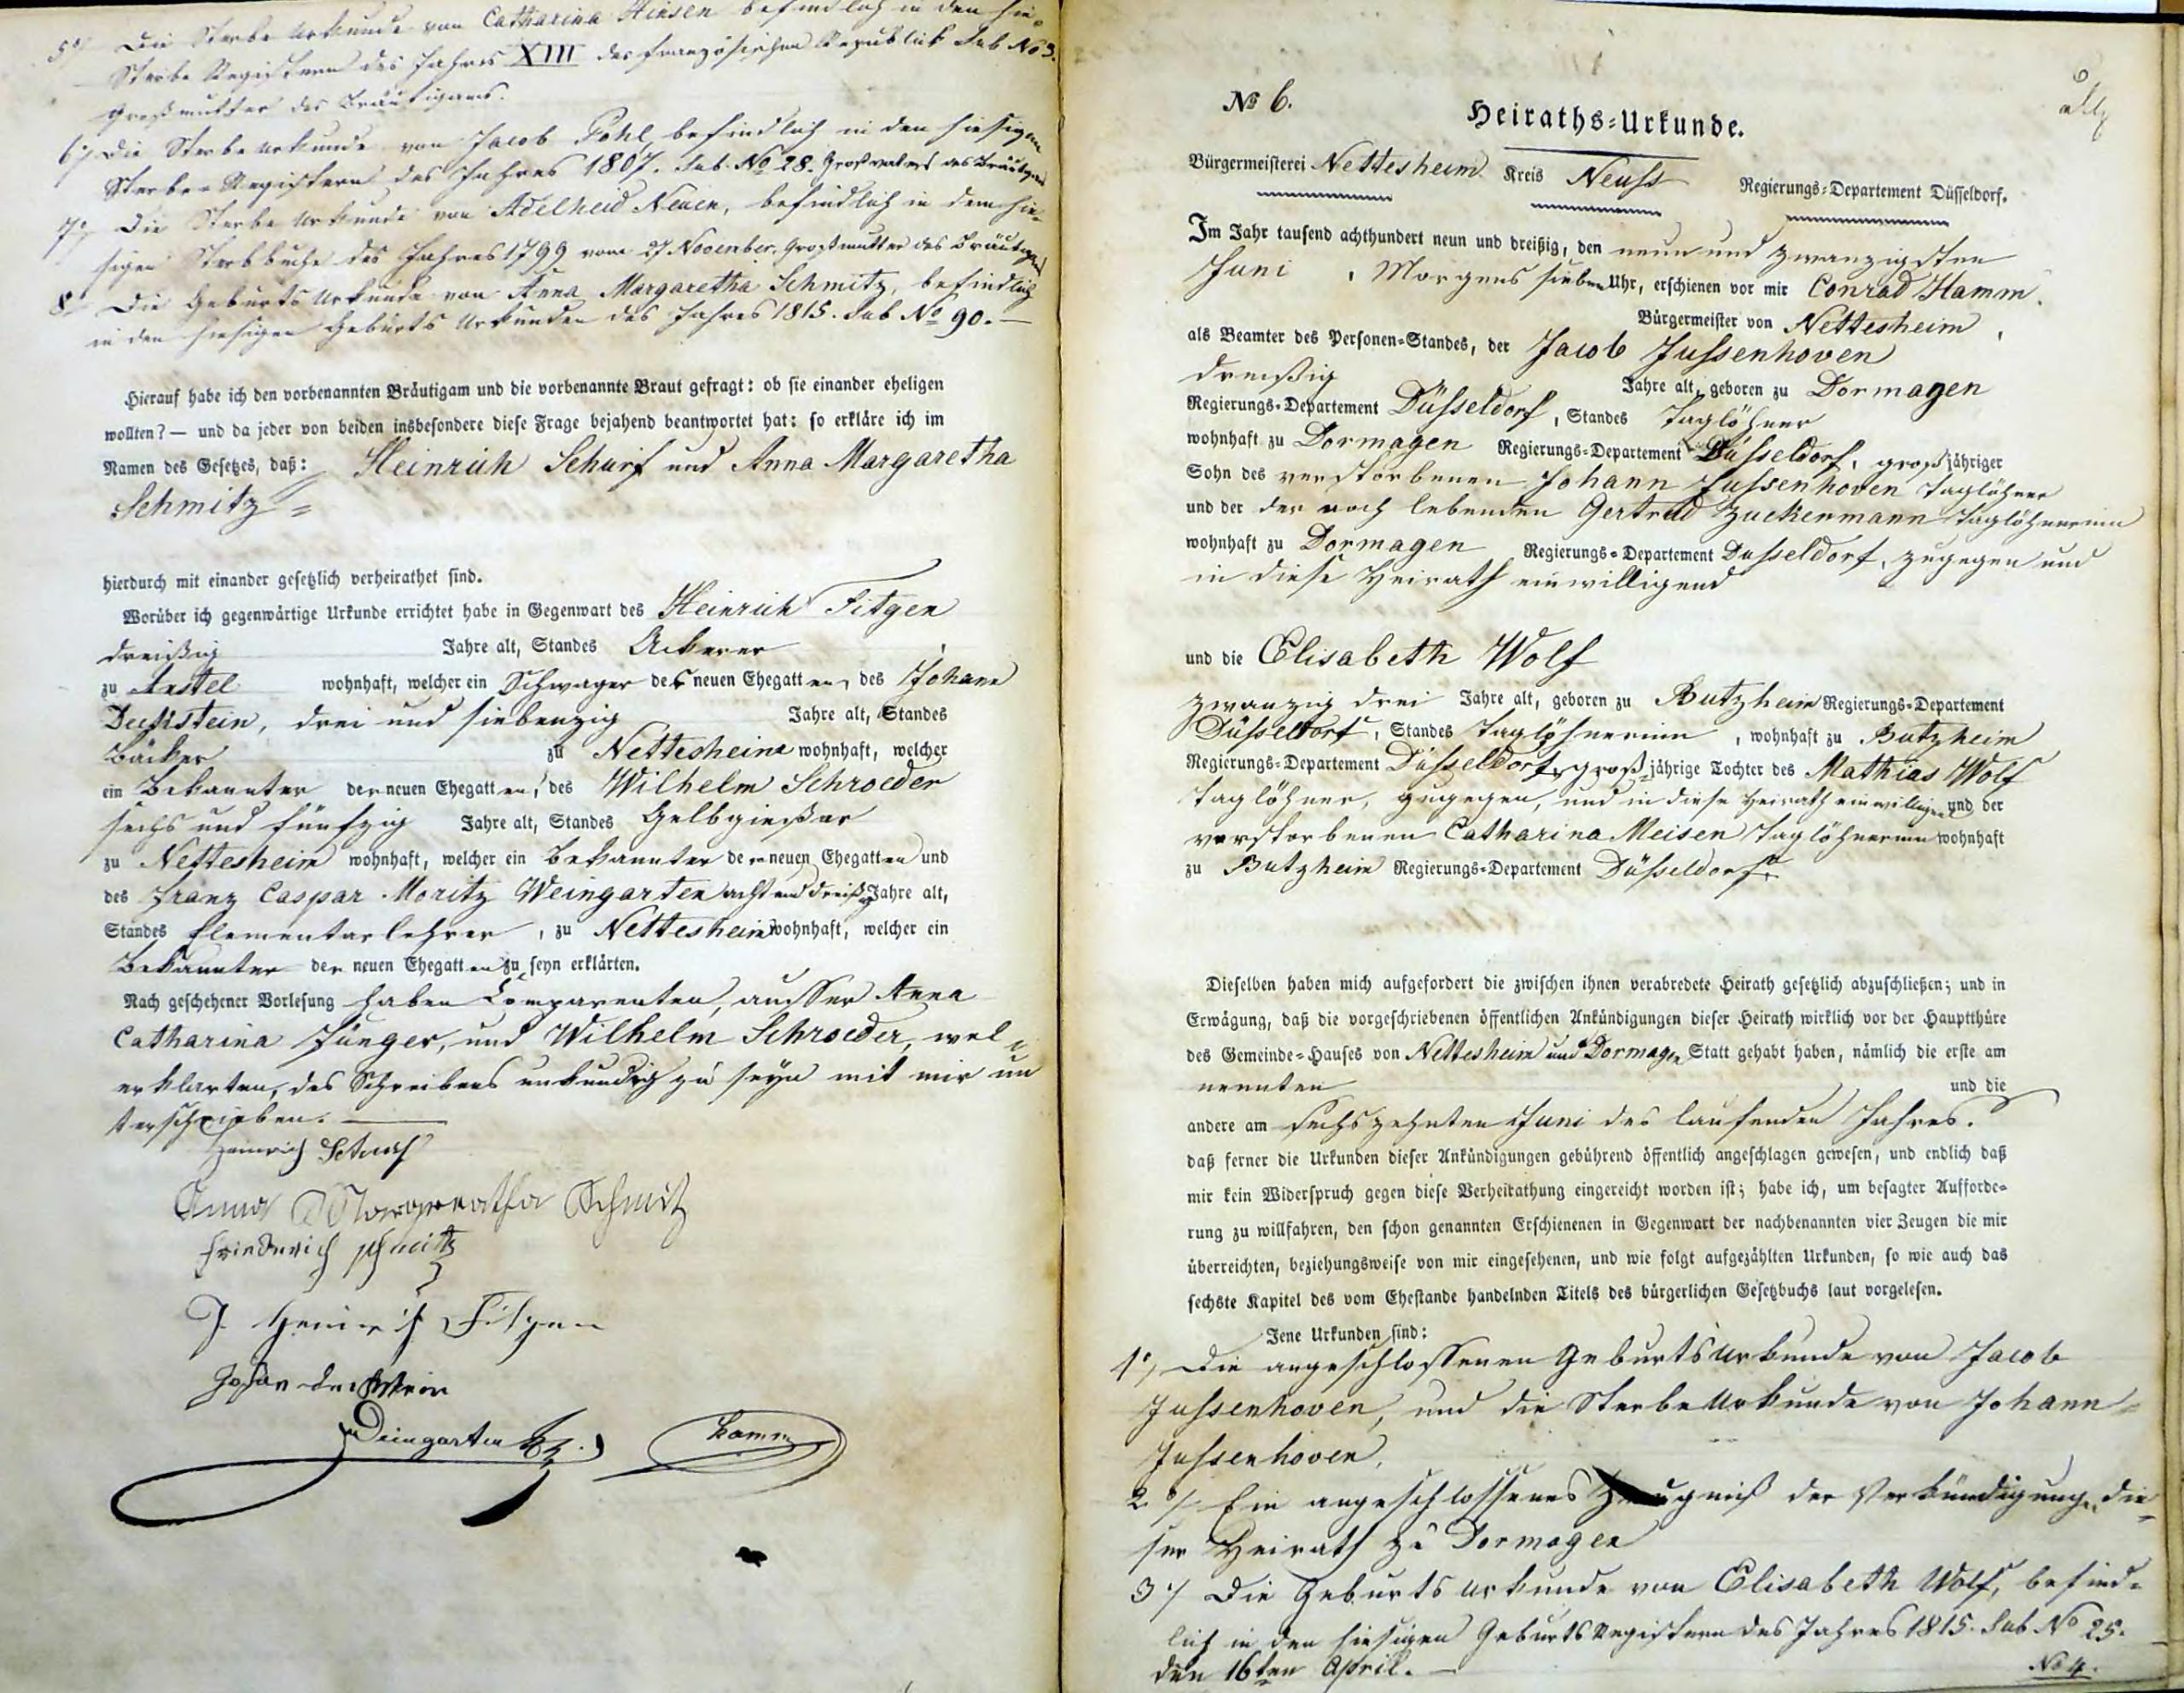 5°/ Die Sterbe Urkunde von Catharina Hinsen befindlich in den hie-
Sterbe Registern des Jahres XIII der französischen Republick Sub No 3.
Großmutter des Bräutigams.
6°/ Die Sterbe Urkunde von Jacob Pohl, befindlich in den hiesigen
Sterbe-Registern des Jahres 1807. Sub. No 28. Großvaters des Bräutigams
7°/ Die Sterbe Urkunde von Adelheid Neuen, befindlich in dem hie-
sigen Sterbbuche des Jahres 1799 vom 27 November. Großmutter des Bräutigams
8°/ Die Geburts Urkunde von Anna Margaretha Schmitz, befindlich
in den hiesigen Geburts Urkunden des Jahres 1815. Sub No 90. —
Hierauf habe ich den vorbenannten Bräutigam und die vorbenannte Braut gefragt: ob sie einander eheligen
wollten? — und da jeder von beiden insbesondere diese Frage bejahend beantwortet hat: so erkläre ich im
Namen des Gesetzes, daß: Heinrich Scharf und Anna Margaretha
Schmitz =
hierdurch mit einander gesetzlich verheirathet sind.
Worüber ich gegenwärtige Urkunde errichtet habe in Gegenwart des Heinrich Fitgen
dreißig Jahre alt, Standes Ackerer
zu Anstel wohnhaft, welcher ein Schwager der neuen Ehegatten, des Johann
Deckstein, drei und siebenzig Jahre alt, Standes
Bäcker zu Nettesheim wohnhaft, welcher
ein Bekannter der neuen Ehegatten, des Wilhelm Schroeder
sechs und fünfzig Jahre alt, Standes Gelbgießer
zu Nettesheim wohnhaft, welcher ein Bekannter der neuen Ehegatten und
des Franz Caspar Moritz Weingarten acht und dreißig Jahre alt,
Standes Elementarlehrer, zu Nettesheim wohnhaft, welcher ein
Bekannter der neuen Ehegatten zu seyn erklärten.
Nach geschehener Vorlesung haben Comparenten, ausser Anna
Catharina Jünger, und Wilhelm Schroeder, wel
erklärten, des Schreibens unkundig zu seyn mit mir un
terschrieben. —
Heinrich Scharf
Anna Margreatha Schmitz
Friederich schmitz
J. Heinrich Fitgen
Johan Deckstein
Weingarten
Hamm
6
No 6.
Heiraths-Urkunde.
Bürgermeisterei Nettesheim Kreis Neuss Regierungs-Departement Düsseldorf.
Im Jahr tausend achthundert neun und dreißig, den neun und zwanzigsten
Juni, Morgens sieben Uhr, erschienen vor mir Conrad Hamm.
Bürgermeister von Nettesheim,
als Beamter des Personen-Standes, der Jacob Jussenhoven
dreißig Jahre alt, geboren zu Dormagen
Regierungs-Departement Düsseldorf, Standes Taglöhner
wohnhaft zu Dormagen Regierungs-Departement Düsseldorf, großjähriger
Sohn des verstorbenen Johann Jussenhoven Taglöhner
und der der noch lebenden Gertrud Zuckermann Taglöhnerinn
wohnhaft zu Dormagen Regierungs-Departement Dusseldorf, zugegen und
in diese Heirath einwilligend
und die Elisabeth Wolf
zwanzig drei Jahre alt, geboren zu Butzheim Regierungs-Departement
Düsseldorf, Standes Taglöhnerinn, wohnhaft zu Butzheim
Regierungs-Departement Düsseldorf, großjährige Tochter des Mathias Wolf
Taglöhner, zugegen, und in diese Heirath einwilligen und der
verstorbenen Catharina Meisen Taglöhnerinn wohnhaft
zu Butzheim Regierungs-Departement Düsseldorf.
Dieselben haben mich aufgefordert die zwischen ihnen verabredete Heirath gesetzlich abzuschließen; und in
Erwägung, daß die vorgeschriebenen öffentlichen Ankündigungen dieser Heirath wirklich vor der Hauptthüre
des Gemeinde-Hauses von Nettesheim und Dormagen Statt gehabt haben, nämlich die erste am
neunten und die
andere am sechszehnten Juni des laufenden Jahres.
daß ferner die Urkunden dieser Ankündigungen gebührend öffentlich angeschlagen gewesen, und endlich daß
mir kein Widerspruch gegen diese Verheirathung eingereicht worden ist; habe ich, um besagter Aufforde-
rung zu willfahren, den schon genannten Erschienenen in Gegenwart der nachbenannten vier Zeugen die mir
überreichten, beziehungsweise von mir eingesehenen, und wie folgt aufgezählten Urkunden, so wie auch das
sechste Kapitel des vom Ehestande handelnden Titels des bürgerlichen Gesetzbuchs laut vorgelesen.
Jene Urkunden sind:
1°/ Die angeschlossenen Geburts Urkunde von Jacob
Jussenhoven, und die Sterbe Urkunde von Johann
Jussenhoven.
2°/ Ein angeschlossenes Zeugniß der Verkündigung die-
ser Heirath zu Dormagen
3°/ Die Geburts Urkunde von Elisabeth Wolf, befind-
lich in den hiesigen Geburts Registern des Jahres 1815. Sub No 25.
den 16ten April. —
No 4.